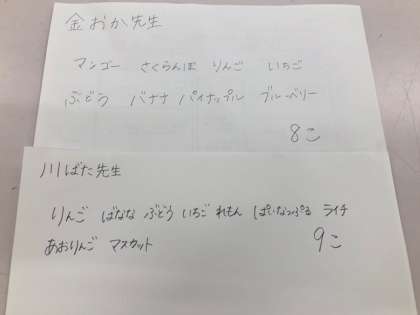 金おか先生
マンゴー さくらんぼ りんご いちご
ぶどう バナナ パイナップル ブルーベリー
8こ
川ばた先生
りんご ばなな ぶどう いちご れもん ぱいなっぷる ライチ
あおりんご マスカット
9こ